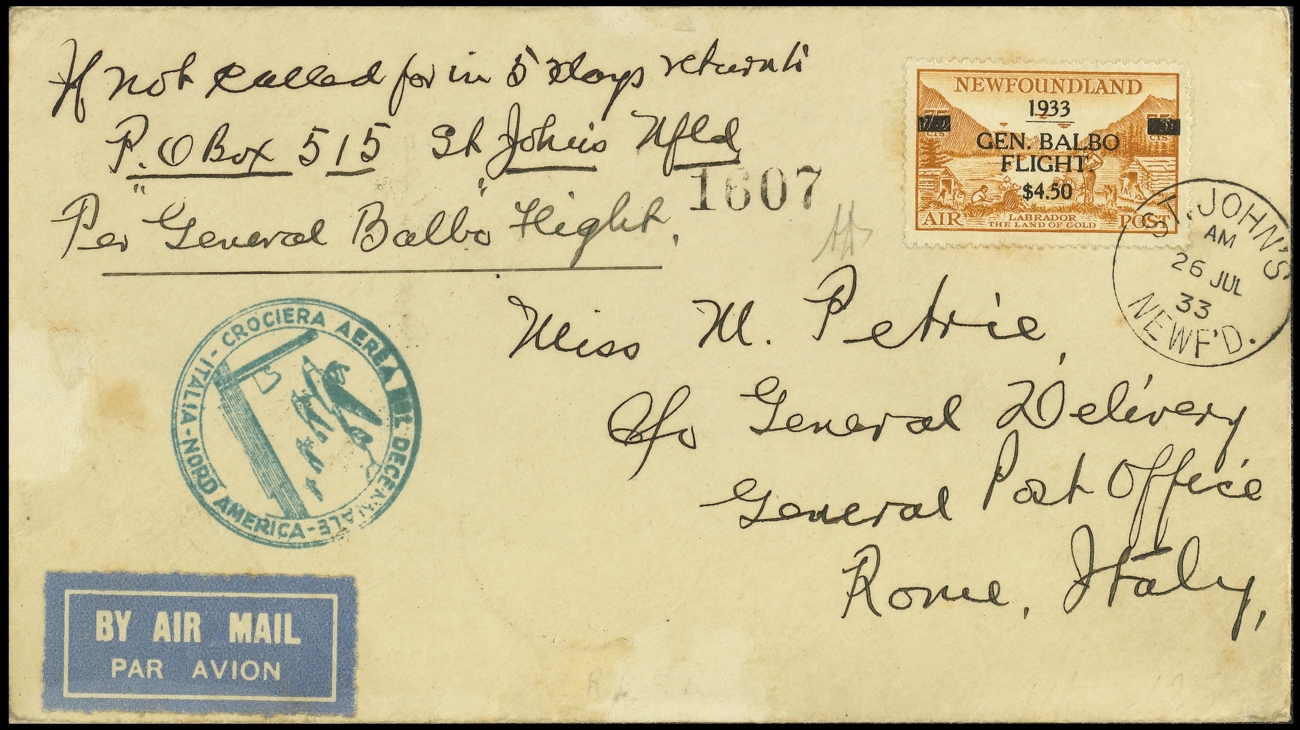 If not called for in 5 days return to
P.O Box 515 St John's Nfld
1607
Per "General Balbo" Flight.
NEWFOUNDLAND
1933
GEN. BALBO
FLIGHT.
$4.50
AIR POST
LABRADOR
THE LAND OF GOLD
ST. JOHN'S
AM
26 JUL
33
NEWF'D.
Miss M. Petrie,
c/o General Delivery
General Post Office
Rome, Italy,
CROCIERA AEREA DEL DECENNALE - ITALIA - NORD AMERICA -
BY AIR MAIL
PAR AVION